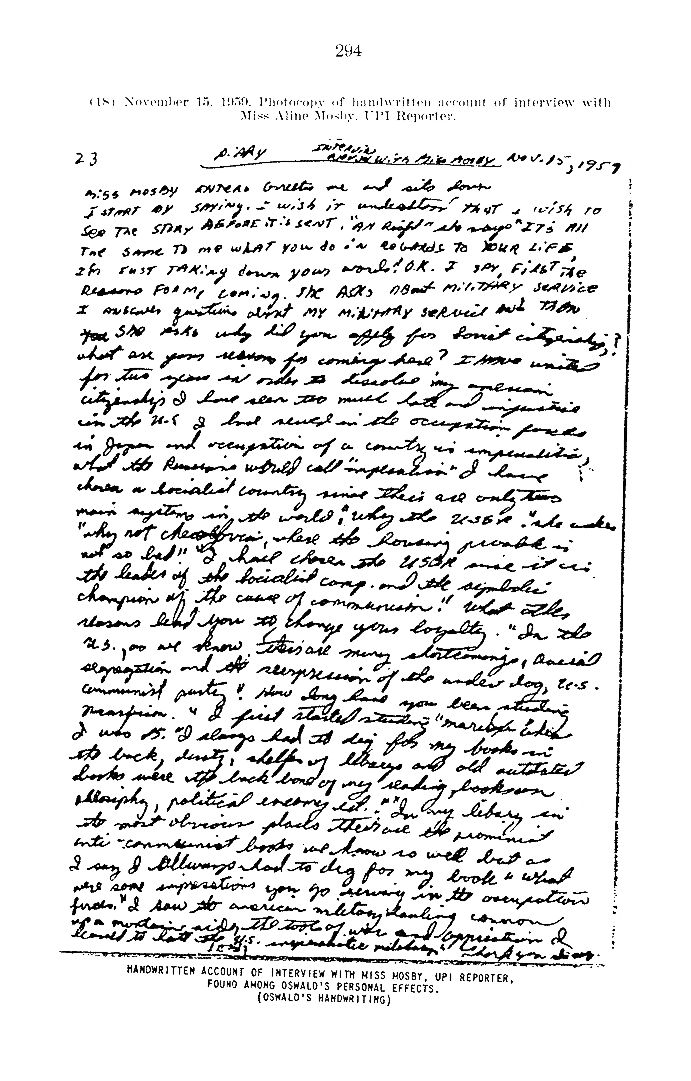 294
(18) November 15, 1959. Photocopy of handwritten account of interview with
Miss Aline Mosby, UPI Reporter.
23 DIARY INTERVIEW WITH MISS MOSBY NOV. 15, 1959
MISS MOSBY ENTERS Greets me and sits down
I START BY SAYING. I wish it understood THAT I WISH TO
SEE THE STORY BEFORE IT IS SENT. "All Right" she says "IT'S All
THE SAME TO ME WHAT YOU do in REGARDS TO YOUR LIFE,
I'M JUST TAKING down your words" O.K. I SAY, FIRST THE
REASONS FOR MY coming. SHE ASKS ABOUT MILITARY SERVICE
I answer questions about MY MILITARY SERVICE and THEN
She ASKS why did you apply for Soviet citizenship?
what are your reasons for coming here? I have waited
for two years in order to dissolve my american
citizenship I have seen too much hate and injustice
in the U.S I had served in the occupation forces
in Japan and occupation of a country is imperialistic,
what the Russians would call "imperialism" I have
chosen a Socialist country since there are only two
main systems in the world", Why the USSR." she asks
"why not , where the housing is
not so bad" "I have chosen the USSR since it is
the leader of the Socialist camp and the symbolic
champion of the cause of communism." What other
reasons lead you to change your loyalty. "In the
U.S., as we know, there are many shortcomings, racial
segregation and the of the under dog, U.S.
Communist party". How long have you been studing
Marxism. "I first started studing Marxism when
I was 15. "I always had to dig for my books in
the back, dusty, shelfes of libarys and old outdated
books were the back bone of my reading, books on
philosiphy, political ecenomy ect." "In my libary in
the most obvious places there are the prominist
anti-communist books we know so well but as
I say I allways had to dig for my book" What
were some impressions you go serving in the occupation
forces." I saw the american military hauling cannon
up a mountain side, the tools of war and oppression I
learned to hate the U.S. imperialistic military" Thank you
HANDWRITTEN ACCOUNT OF INTERVIEW WITH MISS MOSBY, UPI REPORTER,
FOUND AMONG OSWALD'S PERSONAL EFFECTS.
(OSWALD'S HANDWRITING)